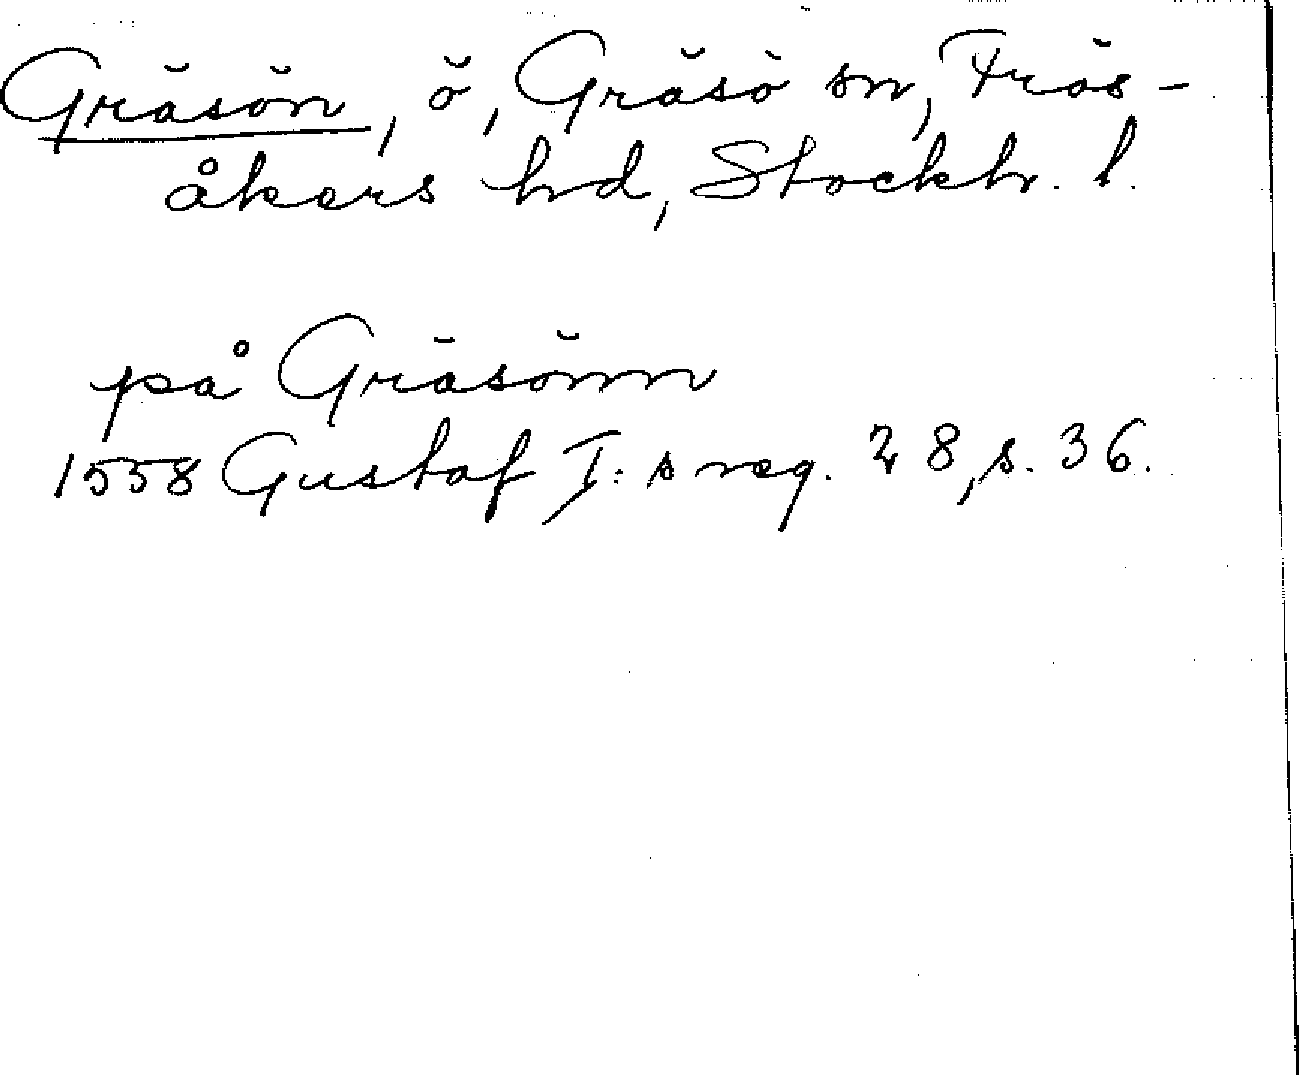 Gräsön, ö, Gräsö sn, Frös-
åkers hd, Stockh. l.
på Gräsönn
1558 Gustaf I:s reg. 28, s. 36.